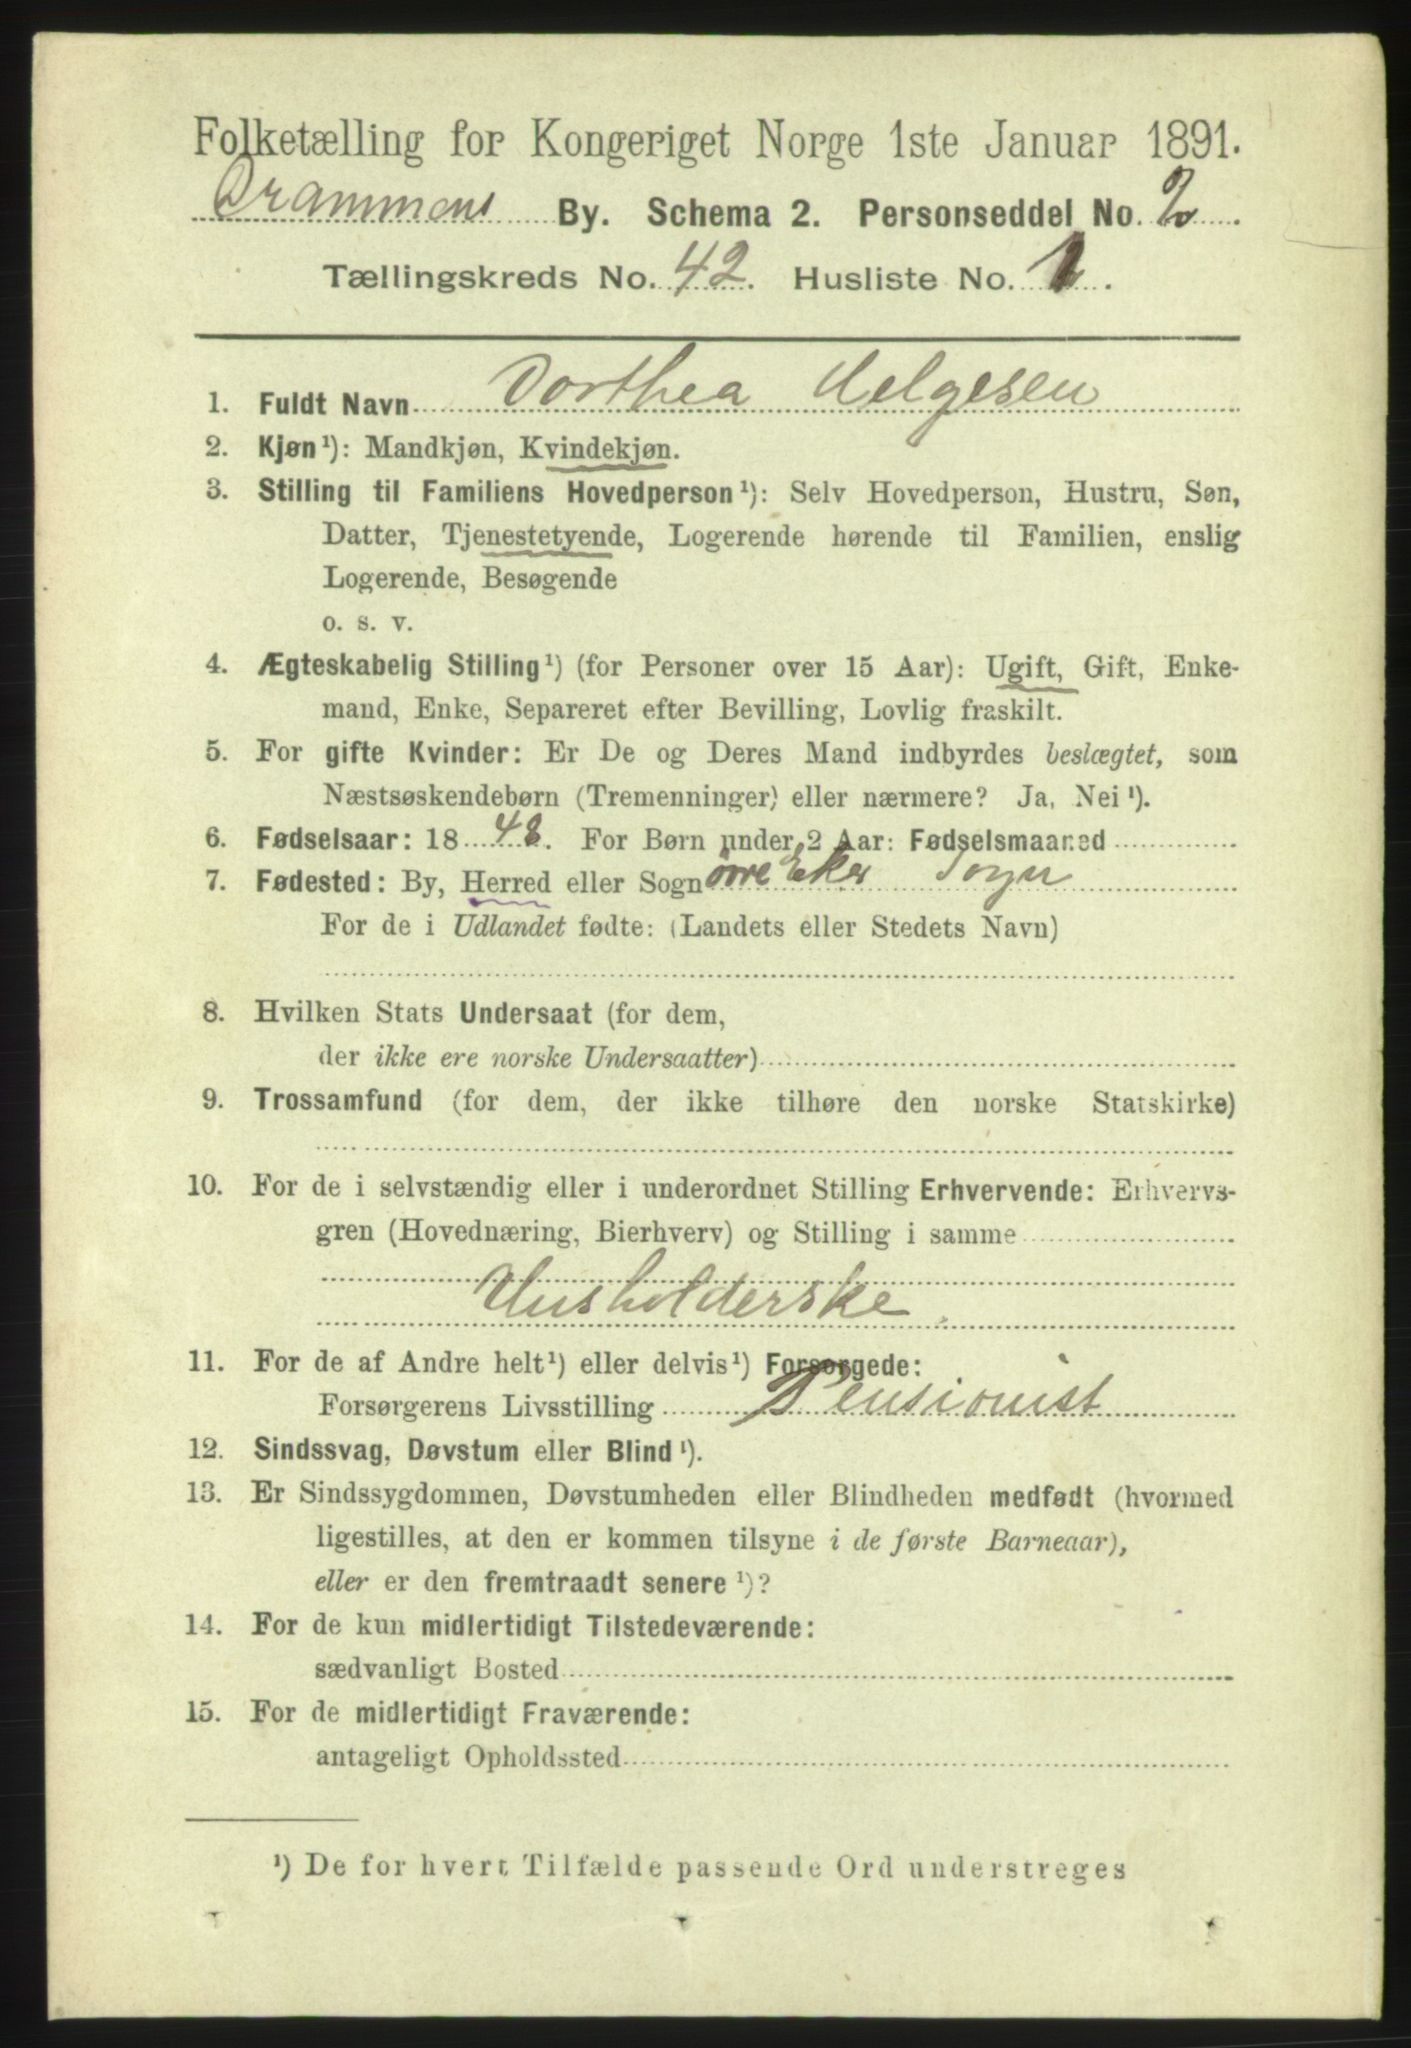 Folketælling for Kongeriget Norge 1ste Januar 1891.
Drammens By. Schema 2. Personseddel No. 2.
Tællingskreds No. 42. Husliste No. 1.
1. Fuldt Navn Dorthea Helgesen
2. Kjøn¹): Mandkjøn, Kvindekjøn.
3. Stilling til Familiens Hovedperson¹): Selv Hovedperson, Hustru, Søn,
Datter, Tjenestetyende, Logerende hørende til Familien, enslig
Logerende, Besøgende
o. s. v.
4. Ægteskabelig Stilling¹) (for Personer over 15 Aar): Ugift, Gift, Enke-
mand, Enke, Separeret efter Bevilling, Lovlig fraskilt.
5. For gifte Kvinder: Er De og Deres Mand indbyrdes beslægtet, som
Næstsøskendebørn (Tremenninger) eller nærmere? Ja, Nei¹).
6. Fødselsaar: 1848. For Børn under 2 Aar: Fødselsmaaned
7. Fødested: By, Herred eller Sogn övre Eker Sogn
For de i Udlandet fødte: (Landets eller Stedets Navn)
8. Hvilken Stats Undersaat (for dem,
der ikke ere norske Undersaatter)
9. Trossamfund (for dem, der ikke tilhøre den norske Statskirke)
10. For de i selvstændig eller i underordnet Stilling Erhvervende: Erhvervs-
gren (Hovednæring, Bierhverv) og Stilling i samme
Husholderske
11. For de af Andre helt¹) eller delvis¹) Forsørgede:
Forsørgerens Livsstilling Pensionist
12. Sindssvag, Døvstum eller Blind¹).
13. Er Sindssygdommen, Døvstumheden eller Blindheden medfødt (hvormed
ligestilles, at den er kommen tilsyne i de første Barneaar),
eller er den fremtraadt senere¹)?
14. For de kun midlertidigt Tilstedeværende:
sædvanligt Bosted
15. For de midlertidigt Fraværende:
antageligt Opholdssted
¹) De for hvert Tilfælde passende Ord understreges